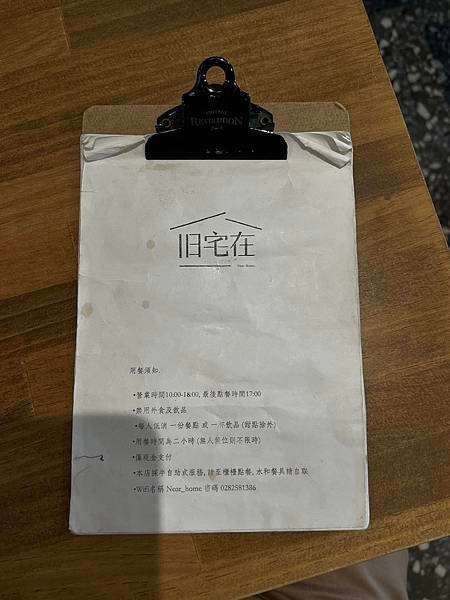 REVOLUTION
旧宅在
Near Home
用餐須知.
•營業時間10:00-18:00, 最後點餐時間17:00
•禁用外食及飲品
•每人低消 一份餐點 或 一杯飲品 (甜點除外)
•用餐時間為二小時 (無人候位則不限時)
•僅現金支付
•本店採半自助式服務, 請至櫃檯點餐, 水和餐具請自取
•WiFi名稱 Near_home 密碼 0282581386